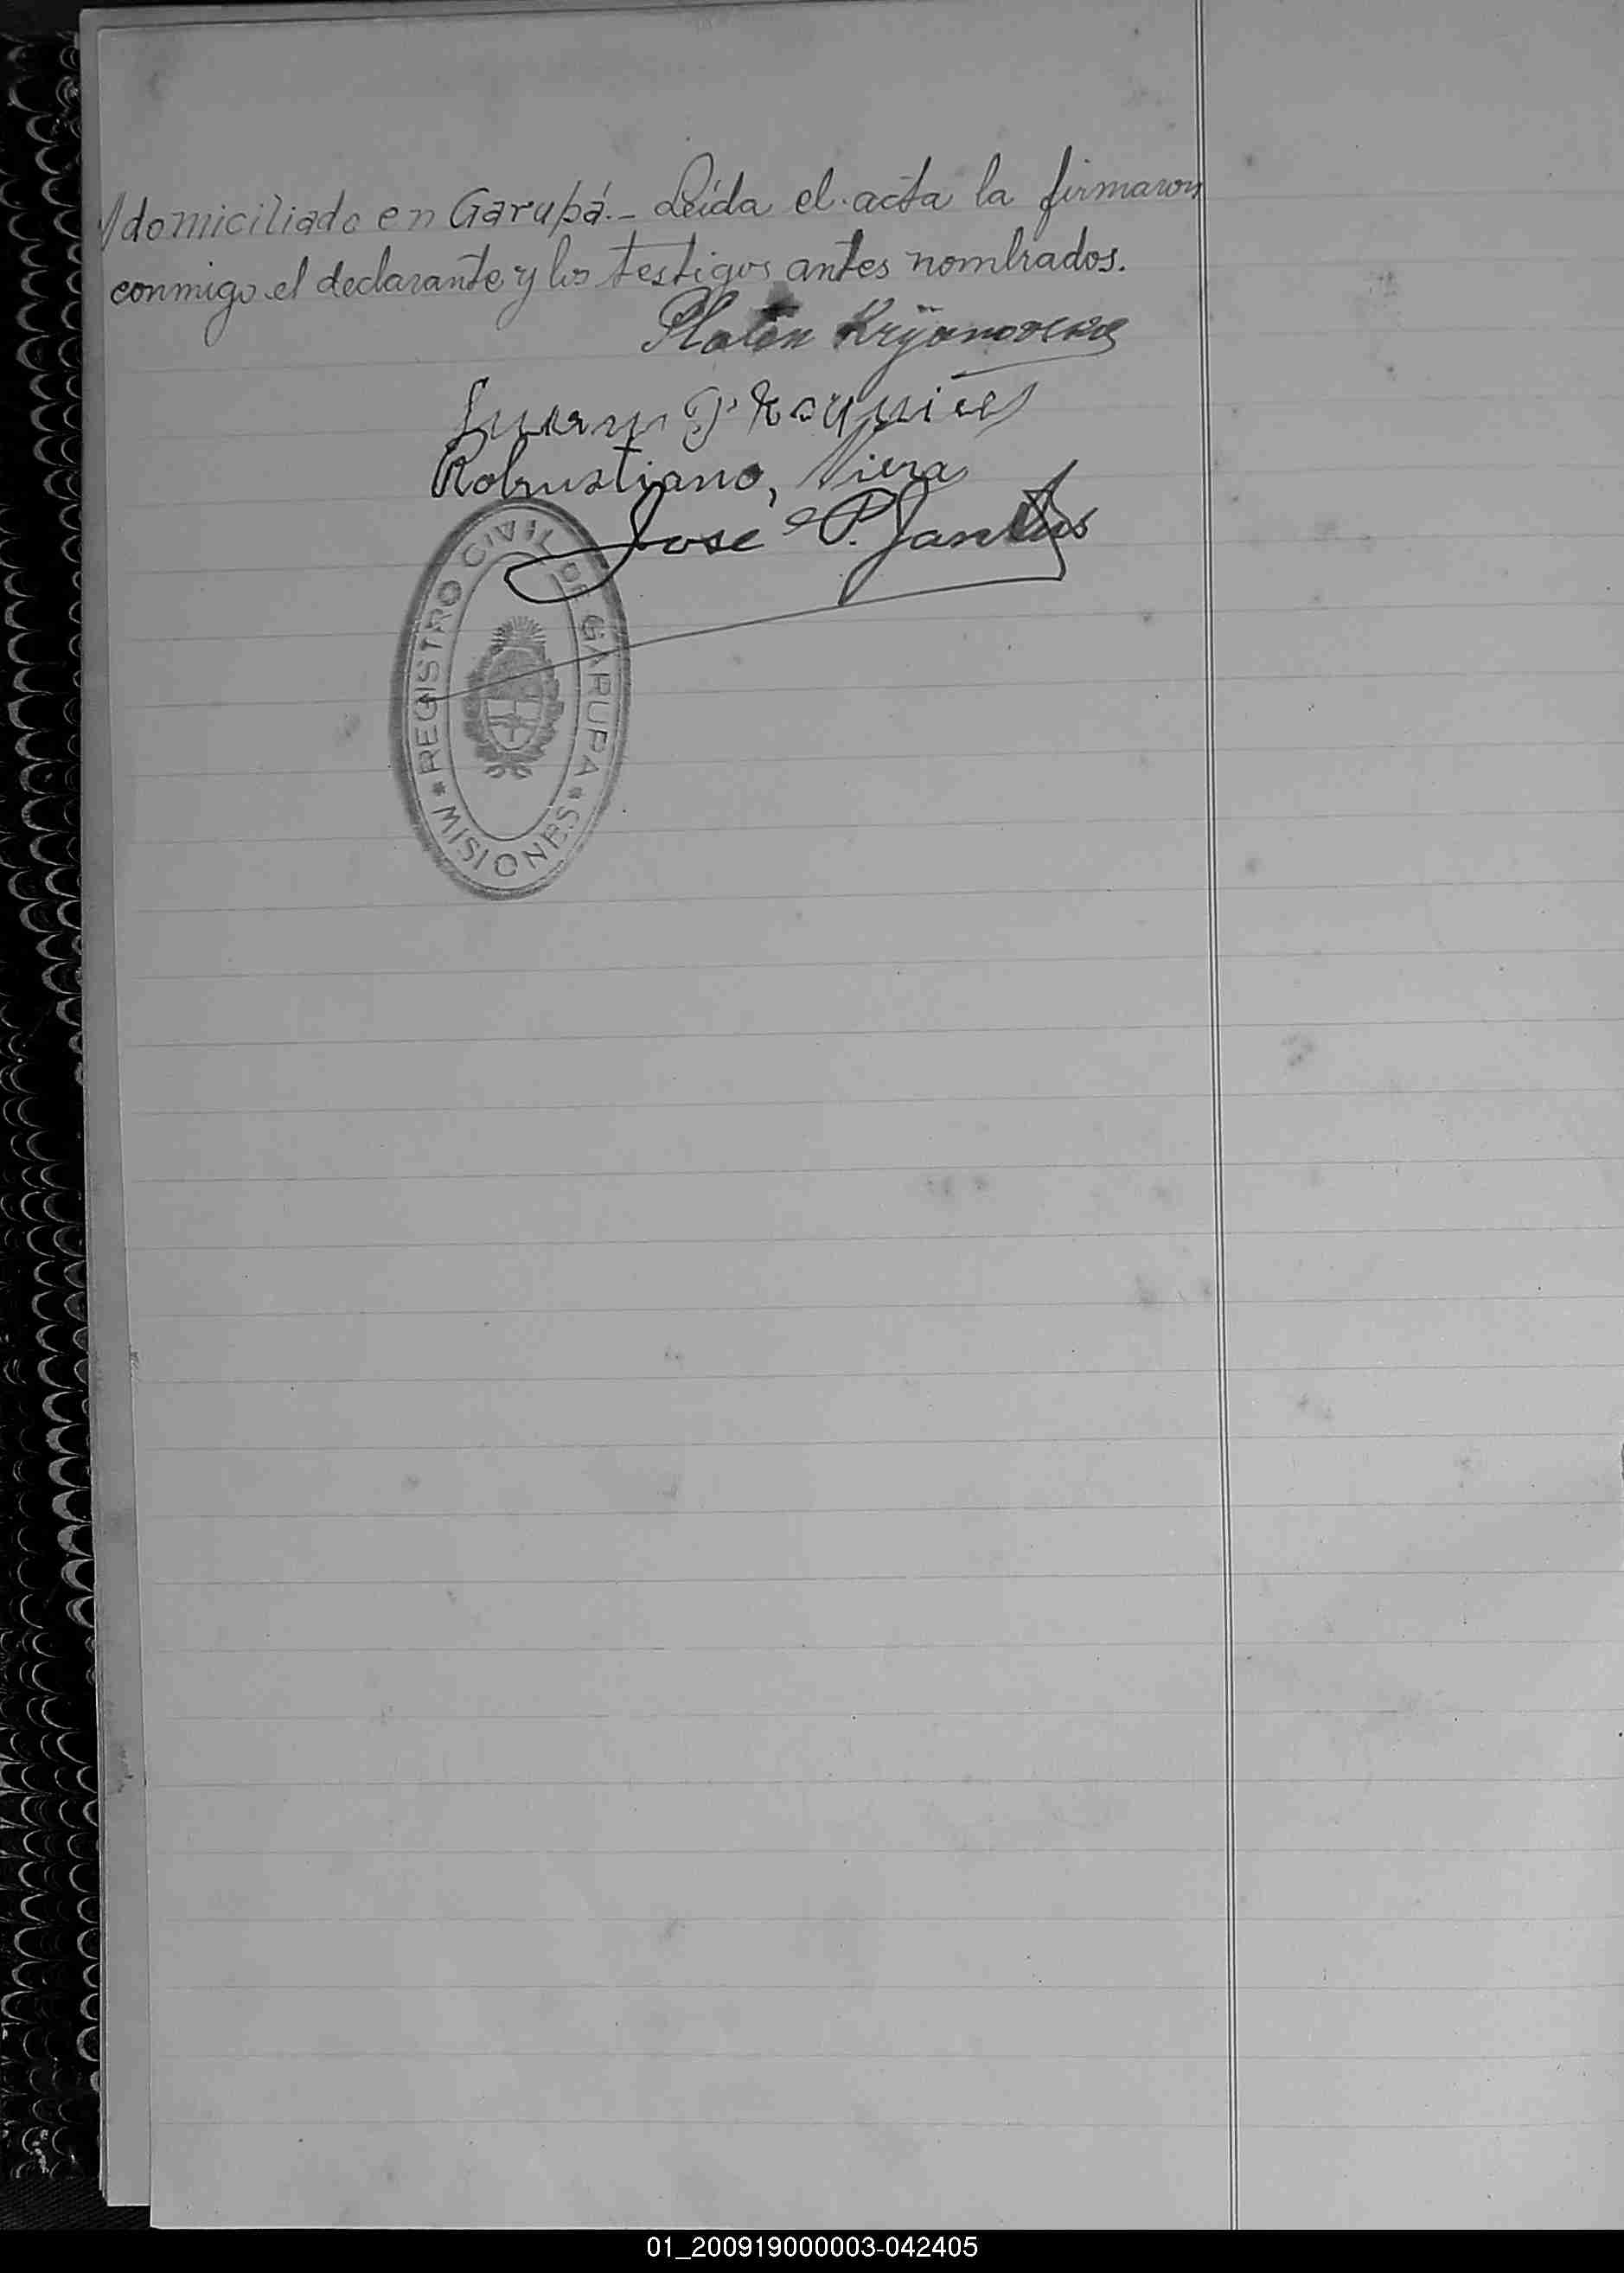 domiciliado en Garupá.- Leída el acta la firmaron
conmigo el declarante y los testigos antes nombrados.
Platón
Robustiano, Viera
José P. Santus
REGISTRO CIVIL DE GARUPA
* MISIONES *
01_200919000003-042405